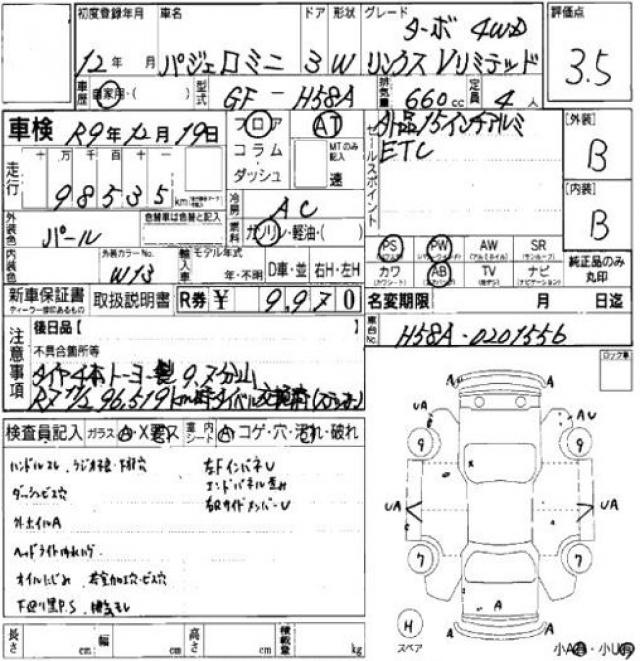 初度登録年月 車名 ドア 形状 グレード 評価点
ターボ 4WD
12年 月 パジェロミニ 3 W リンクスVリミテッド 3.5
車歴 自家用・( ) 型式 GF-H58A 排気量 660cc 定員 4人
車検 R9年12月19日 フロア AT 外品15インチアルミ [外装]
コラム MTのみ記入 ETC B
走行 十万千百十 ダッシュ 速 セールスポイント
98535 km 冷房 AC [内装]
外装色 パール 色替車は色替と記入 燃料 ガソリン・軽油・( ) B
PS PW AW SR
内装色 外装カラーNo. W13 輸入車 モデル年式 年・不明 D車・並 右H・左H カワ AB TV ナビ 純正品のみ丸印
新車保証書 取扱説明書 R券 ¥ 9,970 名変期限 月 日迄
ディーラー印のあるもの
注意事項 後日品【 車台No. H58A-0201556
不具合箇所等 ロック車
タイヤ4本トーヨー製 9.7分山
R7 96,519km時タイベル交換済
検査員記入 ガラス A・X要・X 室内シート A・コゲ・穴・汚れ・破れ
ハンドルスレ
ダッシュビス穴
外ホイルA
オイルにじみ
左Fインパネ U
エンドパネル歪み
右Rサイドメンバー U
A A
UA AU
9 9
UA UA
7 7
A
H A A
スペア 小A・小U
長さ cm 幅 cm 高さ cm 積載量 kg